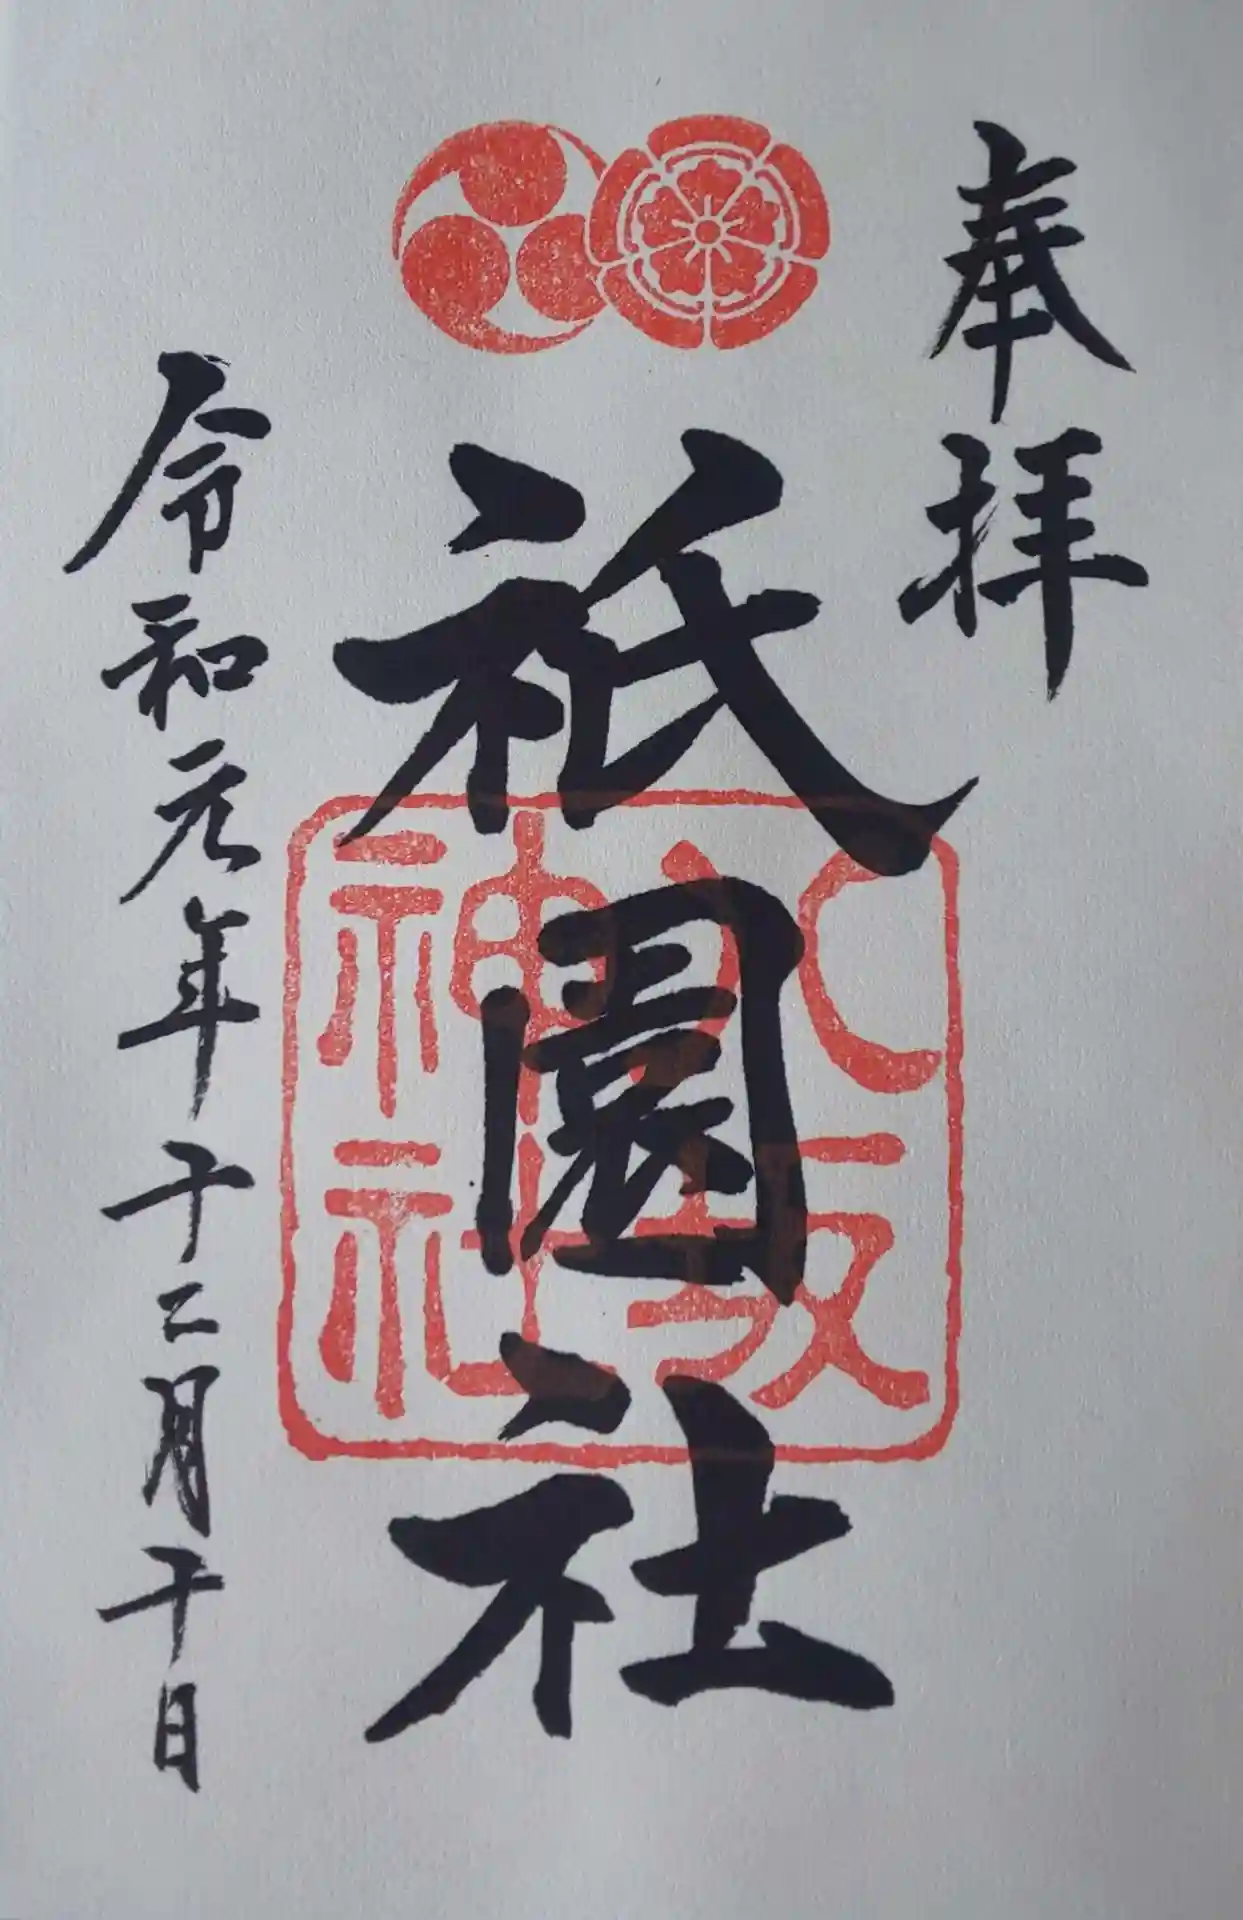 奉拝
祇園社
八坂
神社
令和元年十二月十日